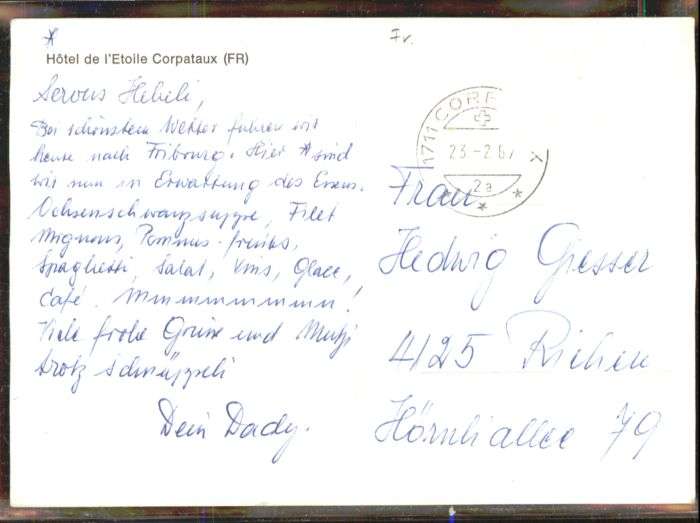 *
Fr.
Hôtel de l'Etoile Corpataux (FR)
Servus Hebeli,
Bei schönstem Wetter fuhren wir
heute nach Fribourg. Hier * sind
wir nun in Erwartung des Essens.
Ochsenschwanzsuppe, Filet
Mignons, Pommes-frites,
Spaghetti, Salat, Vins, Glace,
Café. Mmmmmmmmm!
Viele frohe Grüsse und Mutzi
trotz Schnäggeli
Dein Dady.
1711 CORP
23.-2.67
2a
* * *
Frau
Hedwig Giesser
4125 Riehen
Hörnliallee 79